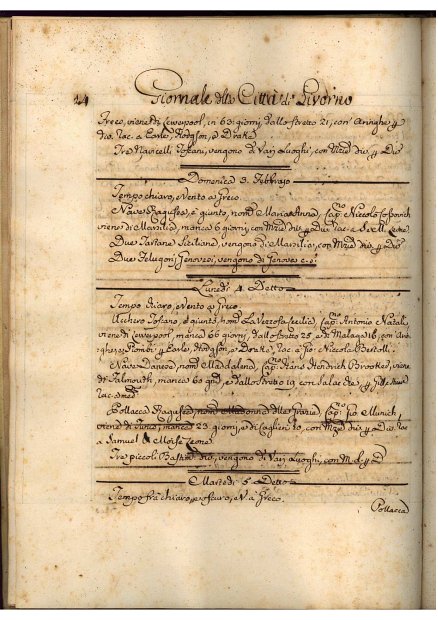 24 Giornale della Città di Livorno
Greco, viene di Leverpool, in 63 giorni, dallo stretto 21, con Aringhe p
div. rac. a Earle, Hodgson, e Drake
Tre Navicelli Toscani, vengono di Varj Luoghi, con Mzie div. p Div
Domenica 3. Febbrajo
Tempo chiaro, e Vento a Greco
Nave Ragusea, è giunta, nom. Maria Anna, Cap.no Niccolò
viene di Marsilia, manca 6 giorni, con Mzie div. p Div. rac. a
Due Tartane Siciliane, vengono di Marsilia, con Mzie div. p Div
Due Felugoni Genovesi, vengono di Genova c. s.
Lunedì 4. Detto
Tempo chiaro, e Vento a Greco
Toscano, è giunto, nom. La Vezzosa Cecilia, Cap.no Antonio Natali,
viene di Leverpool, manca 66 giorni, dallo stretto 25 e di Malaga 16, con Arin
ghe, e Piombi p Earle, Hodgson, e Drake, rac. a Gio. Niccola Bertolli
Nave Danese, nom. Madalena, Cap.no Hans Hendrich Brookes, viene
di Falmouth, manca 60 gni, e dallo stretto 19 con Salacche p
rac. a med.
Pollacca Ragusea, nom. Madonna delle Grazie, Cap.no Gio. Munich,
viene di Tunis, manca 23 giorni, e di Cagliari 10, con Mzie div. p Div. rac
a Samuel e Moisè Leone
Tre piccoli Bastim. div., vengono di Varj Luoghi, con M. d. p D
Martedì 5. Detto
Tempo frà chiaro, e oscuro, e V. a Greco.
Pollacca